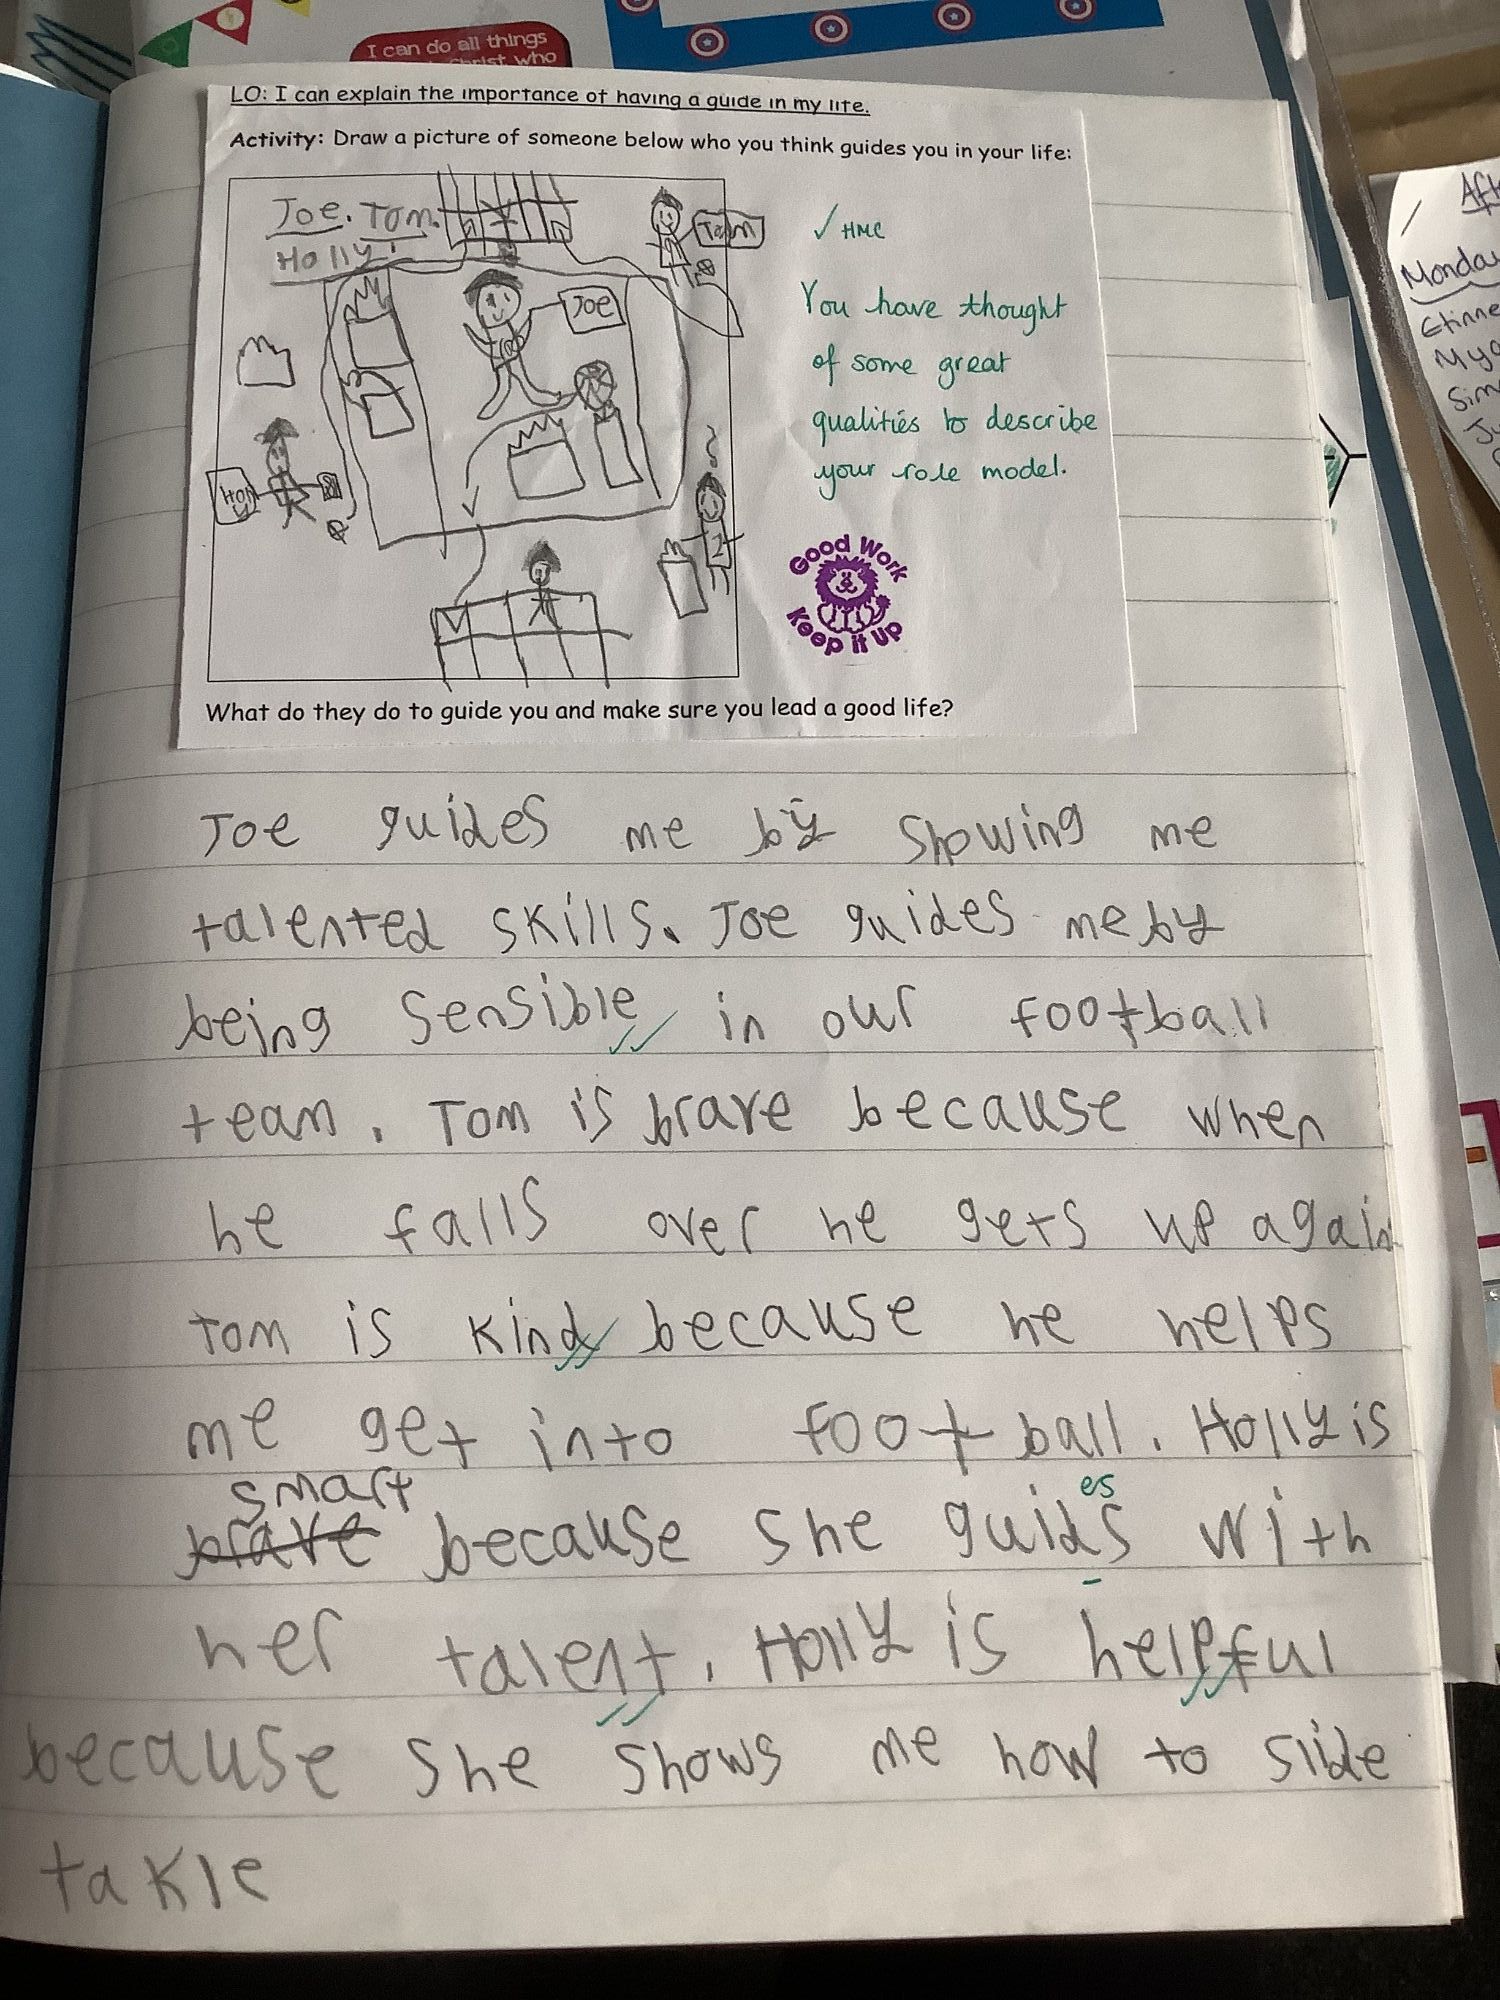 I can do all things
Christ who
LO: I can explain the importance of having a guide in my life.
Activity: Draw a picture of someone below who you think guides you in your life:
Joe. Tom.
Holly!
Tom
Joe
Holly
2
✓ HMC
You have thought
of some great
qualities to describe
your role model.
Good Work
Keep it up
What do they do to guide you and make sure you lead a good life?
Joe guides me by showing me
talented skills. Joe guides me by
being sensible in our football
team. Tom is brave because when
he falls over he gets up again
Tom is kind because he helps
me get into football. Holly is
smart
brave because she guids with
es
her talent. Holly is helpful
because she shows me how to slide
takle
Monday